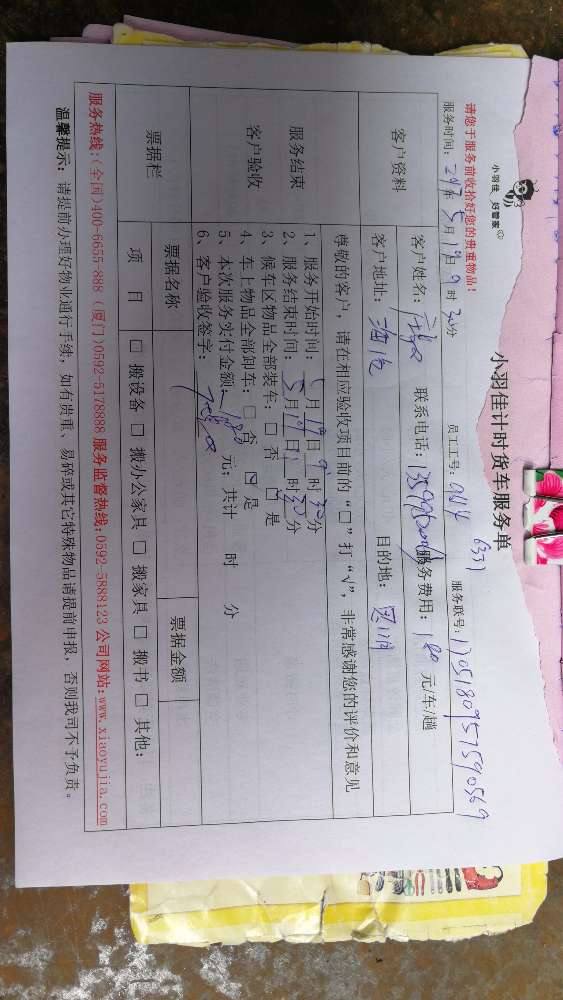 小羽佳 好管家
小羽佳计时货车服务单
请您于服务前收拾好您的贵重物品!
服务时间: 2017年 5月19日 9时 30分 员工工号: 服务联号: 1705180957590569
客户资料
客户姓名: 联系电话: 服务费用: 180 元/车/趟
客户地址: 目的地:
尊敬的客户, 请在相应验收项目前的“□”打“√”, 非常感谢您的评价和意见
服务结束
客户验收
1、服务开始时间: 5月19日 9时30分
2、服务结束时间: 5月19日 时30分
3、候车区物品全部装车: □ 否 ☑ 是
4、车上物品全部卸车: □ 否 ☑ 是
5、本次服务实付金额: 180 元; 共计 时 分
6、客户验收签字:
票据栏
票据名称 票据金额
项 目 □ 搬设备 □ 搬办公家具 □ 搬家具 □ 搬书 □ 其他:
服务热线:(全国)400-6655-888 (厦门)0592-5178888 服务监督热线:0592-5888123 公司网站:www.xiaoyujia.com
温馨提示: 请提前办理好物业通行手续, 如有贵重、易碎或其它特殊物品请提前申报, 否则我司不予负责。